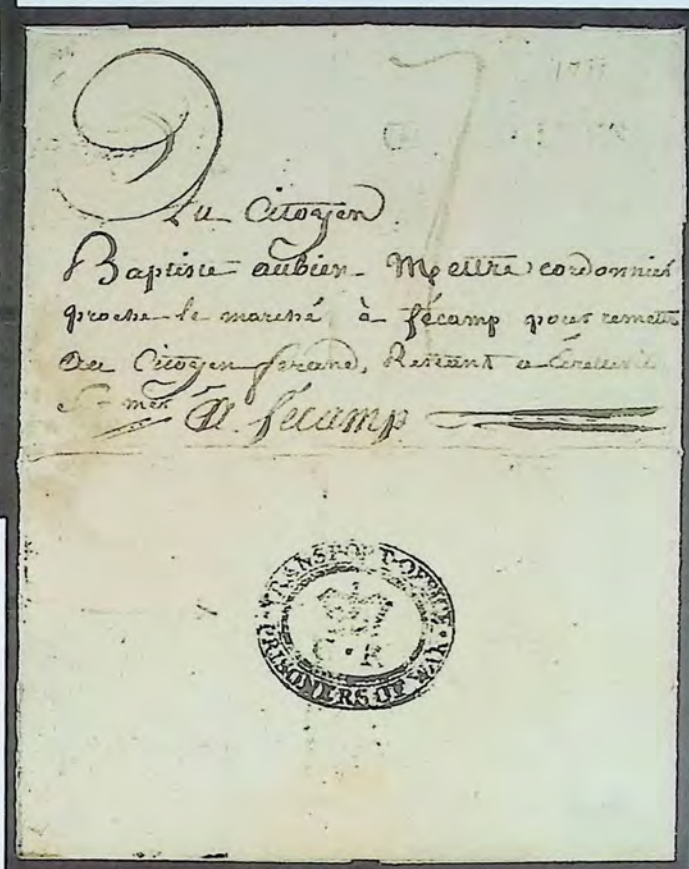 Au Citoyen
Baptiste aubien Mettre cordonnier
proche le marché à fécamp pour remettre
Au Citoyen ferand, Restant a
S- mer A fécamp
TRANSPORT·OFFICE·
PRISONERS OF WAR·
G·R